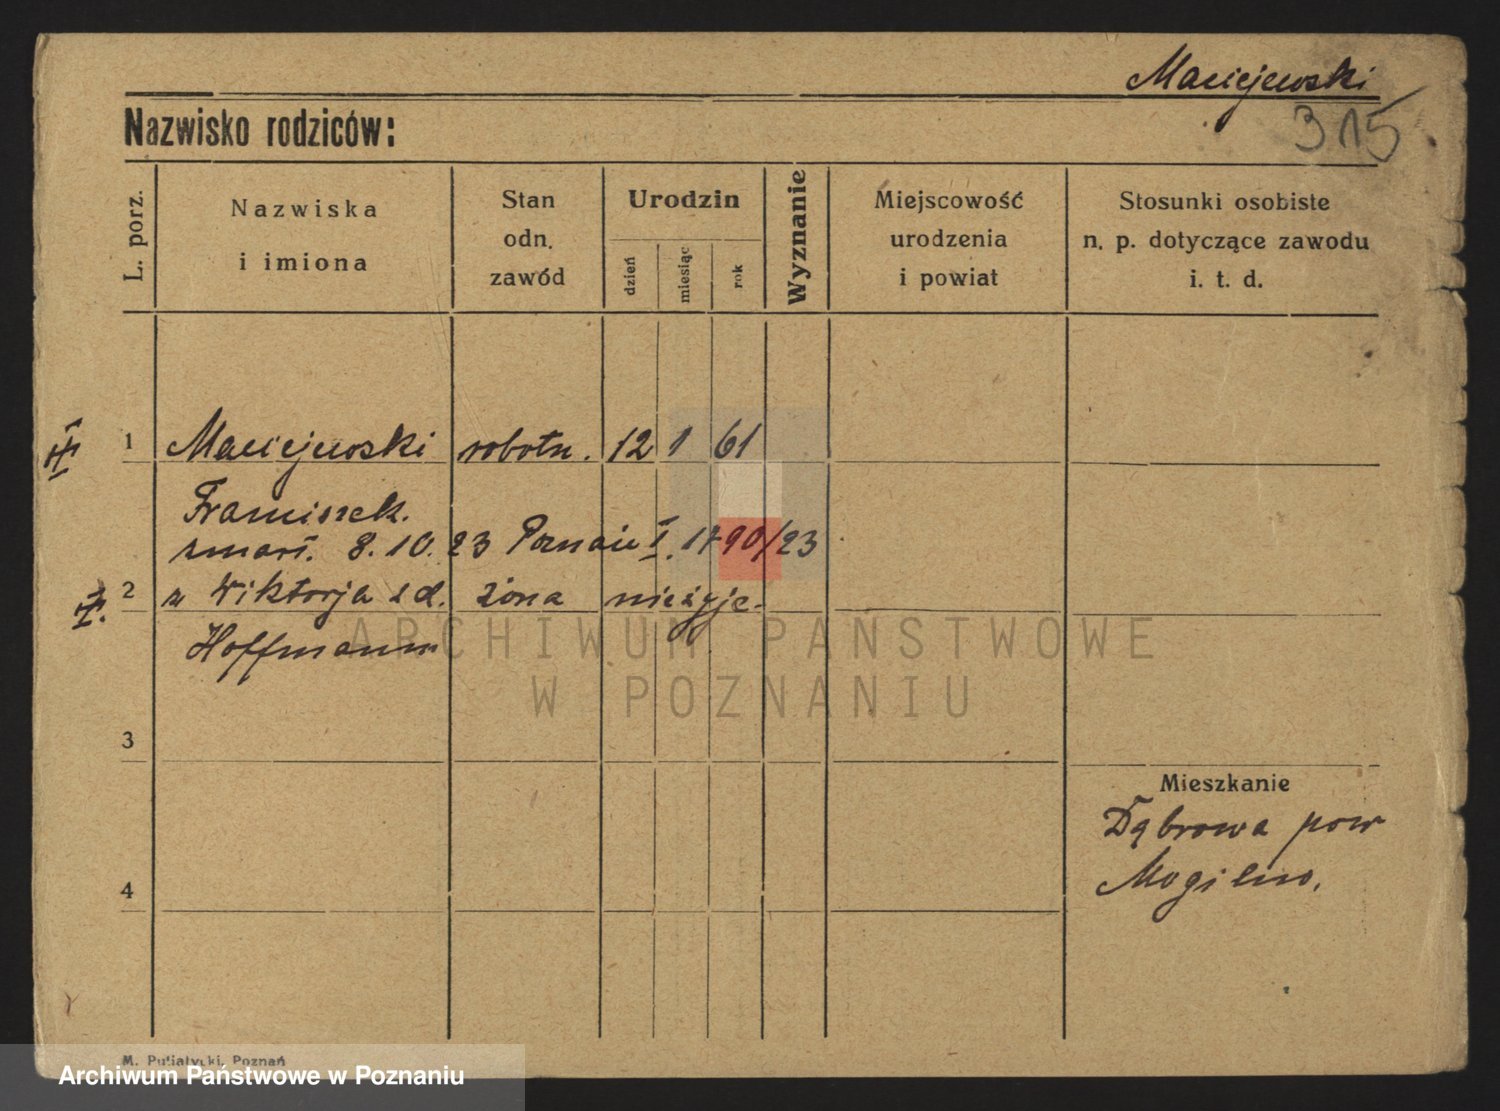 Maciejewski
315
Nazwisko rodziców:
L. porz.
Nazwiska
i imiona
Stan
odn.
zawód
Urodzin
dzień
miesiąc
rok
Wyznanie
Miejscowość
urodzenia
i powiat
Stosunki osobiste
n. p. dotyczące zawodu
i. t. d.
1 Maciejewski robotn. 12 1 61
Franciszek.
zmarł. 8. 10. 23 Poznań I. 1790/23
2 Wiktorja zd. żona nieżyje.
Hoffmann
3
4
Mieszkanie
Dąbrowa pow
Mogilno.
ARCHIWUM PAŃSTWOWE
W POZNANIU
M. Putiatycki, Poznań
Archiwum Państwowe w Poznaniu